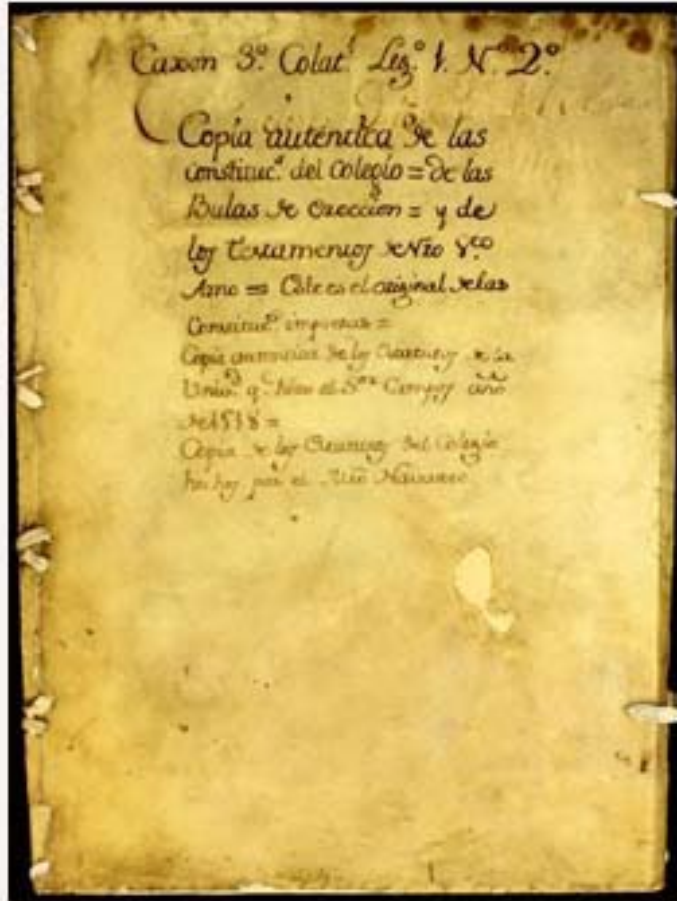 Caxon 3º Colat.¹ Leg.º 1. N.º 2º
Copia auténtica de las
constituc.s del Colegio = de las
Bulas de ereccion = y de
los Testamentos de Nro V.co
Amo = Este es el original de las
Constituc.s impresas =
Copia autentica de los Estatutos de la
Univ.d q.e hizo el S.or Campos año
de 1518 =
Copia de los Estatutos del Colegio
hechos por el Navarro